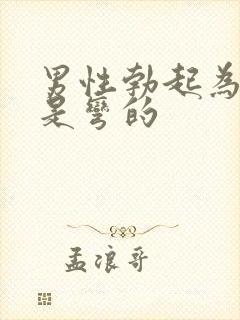 男性勃起為
是彎的
孟浪哥